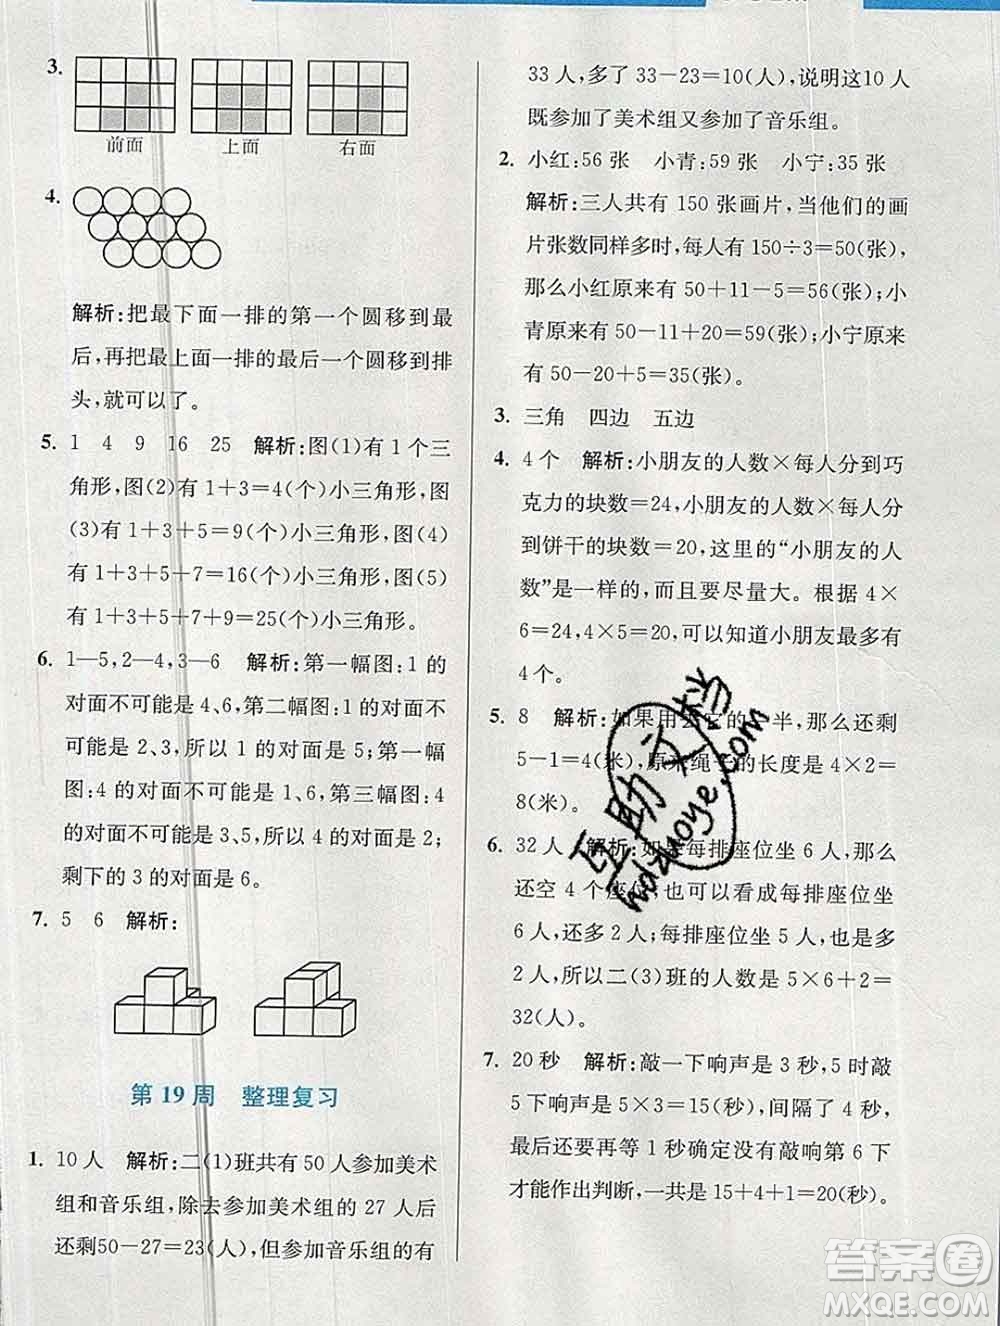 3.
前面 上面 右面
4.
解析:把最下面一排的第一个圆移到最
后,再把最上面一排的最后一个圆移到排
头,就可以了。
5. 1 4 9 16 25 解析:图(1)有1个三
角形,图(2)有1+3=4(个)小三角形,图
(3)有1+3+5=9(个)小三角形,图(4)
有1+3+5+7=16(个)小三角形,图(5)
有1+3+5+7+9=25(个)小三角形。
6. 1—5,2—4,3—6 解析:第一幅图:1的
对面不可能是4、6,第二幅图:1的对面不可能
是2、3,所以1的对面是5;第一幅
图:4的对面不可能是1、6,第三幅图:4
的对面不可能是3、5,所以4的对面是2;
剩下的3的对面是6。
7. 5 6 解析:
第19周 整理复习
1. 10人 解析:二(1)班共有50人参加美术
组和音乐组,除去参加美术组的27人后
还剩50-27=23(人),但参加音乐组的有
33人,多了33-23=10(人),说明这10人
既参加了美术组又参加了音乐组。
2. 小红:56张 小青:59张 小宁:35张
解析:三人共有150张画片,当他们的画
片张数同样多时,每人有150÷3=50(张),
那么小红原来有50+11-5=56(张),小
青原来有50-11+20=59(张),小宁原来
有50-20+5=35(张)。
3. 三角 四边 五边
4. 4个 解析:小朋友的人数×每人分到巧
克力的块数=24,小朋友的人数×每人分
到饼干的块数=20,这里的“小朋友的人
数”是一样的,而且要尽量大。因为4×
6=24,4×5=20,可以知道小朋友最多有
4个。
5. 8 解析:如果用去它的一半,那么还剩
5-1=4(米),原来绳子的长度是4×2=
8(米)。
6. 32人 解析:如果每排座位坐6人,那么
还空4个座位,也可以看成每排座位坐
6人,还多2人;每排座位坐5人,还多
2人,所以二(3)班的人数是5×6+2=
32(人)。
7. 20秒 解析:敲一下响声是3秒,5时敲
5下响声是5×3=15(秒),间隔了4秒,
最后还要再等1秒确定没有敲响第6下
才能作出判断,一共是15+4+1=20(秒)。
互助文档
huzhuoye.com
答案圈
MXQE.COM